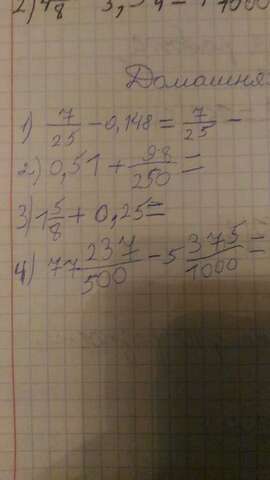 2)
Домашня
1) 7/25 - 0,148 = 7/25 -
2) 0,51 + 98/250 =
3) 1 5/8 + 0,25 =
4) 77 237/500 - 5 375/1000 =